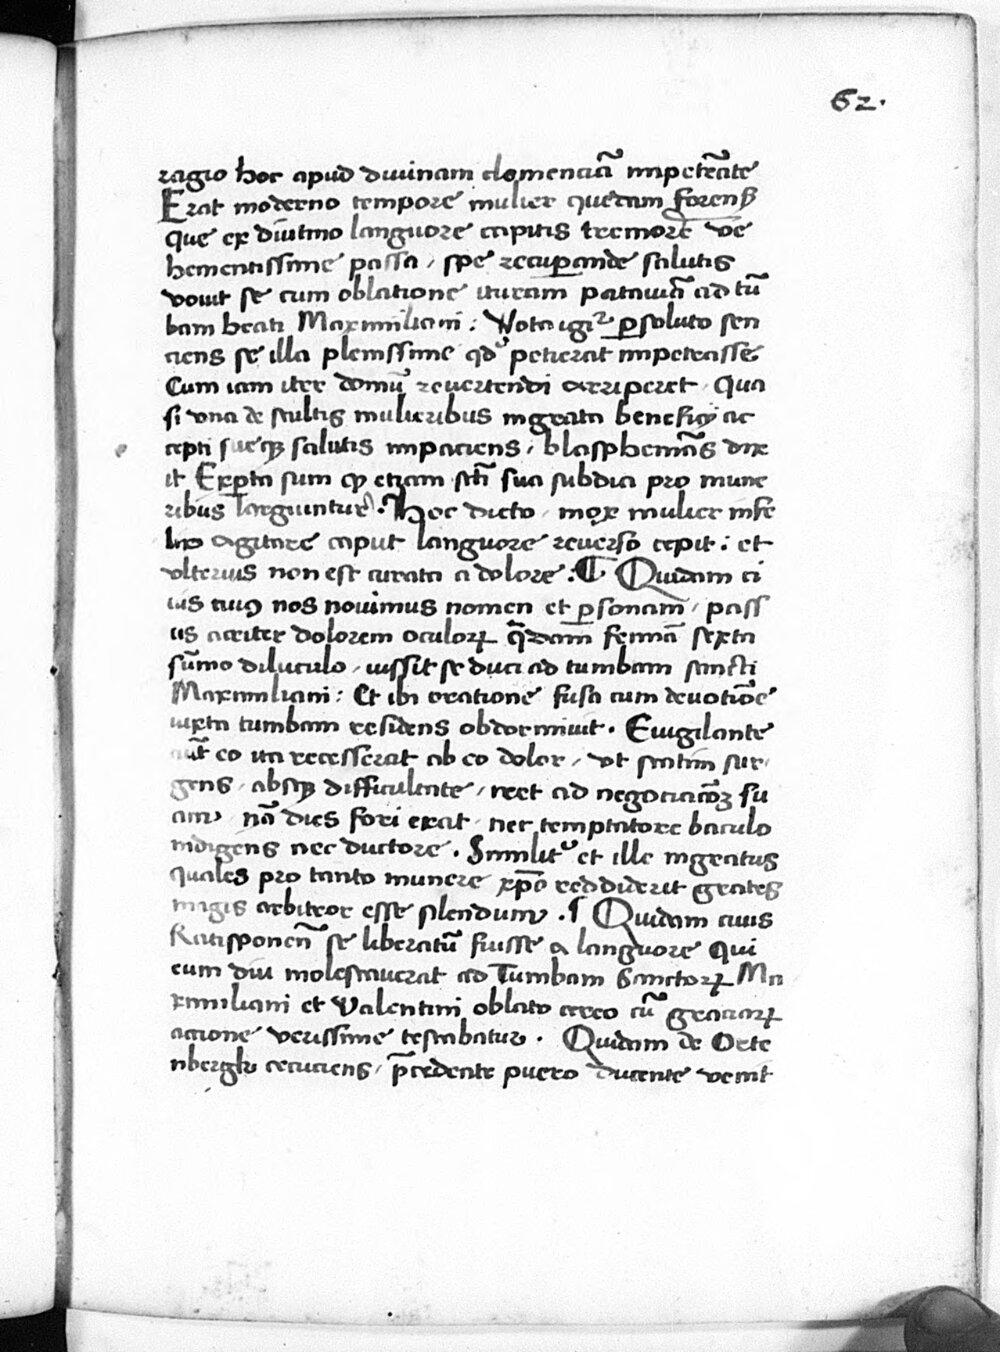 62.
ragio hoc apud diuinam clemenciā impetrāte
Erat moderno tempore mulier quedam forensꝭ
que ex diutino languore capitis tremore ve
hementissime passa, spe recuꝑande salutis
vouit se cum oblatione ituram patauiā ad tū
bam beati Maximiliani: Voto igiᵗ ꝑsoluto sen
ciens se illa plenissime qd' petierat impetrasse
Cum iam iter domū reuertendi arriperet, qua
si vna de stultis mulieribus ingrata beneficij ac
cepti sueqꝫ salutis impaciens, blasphemās dix
it Exꝑta sum ꝙ etiam sctī sua subdia pro mune
ribus largiuntur. Hoc dicto, mox mulier infe
lix agitare caput languore reuerso cepit: et
vlterius non est curata a dolore. ¶ Quidam ci
uis cuiꝰ nos nouimus nomen et ꝑsonam, pass
us acriter dolorem oculoꝝ q̄dam ferīa sexta
sūmo diluculo, iussit se duci ad tumbam sancti
Maximiliani: Et ibi oratione fusa cum deuotiōe
iuxta tumbam residens obdormiuit. Euigilante
aūt eo ita recesserat ab eo dolor, vt statim sur
gens, absqꝫ difficultate, iret ad negociacōꝫ su
am, nā dies fori erat, nec temptatore baculo
indigens nec ductore. Similitᵉ et ille ingratus
quales pro tanto munere xp̄o reddiderit grates
magis arbitror esse silendum. ¶ Quidam ciuis
Ratisponeñ se liberatū fuisse a languore qui
eum diu molestauerat ad Tumbam Sanctoꝝ Ma
ximiliani et Valentini oblato cereo cū graciaꝝ
accione verissime testabatur. Quidam de Orte
nbergk cecuciens, p̄cedente puero ducente venit